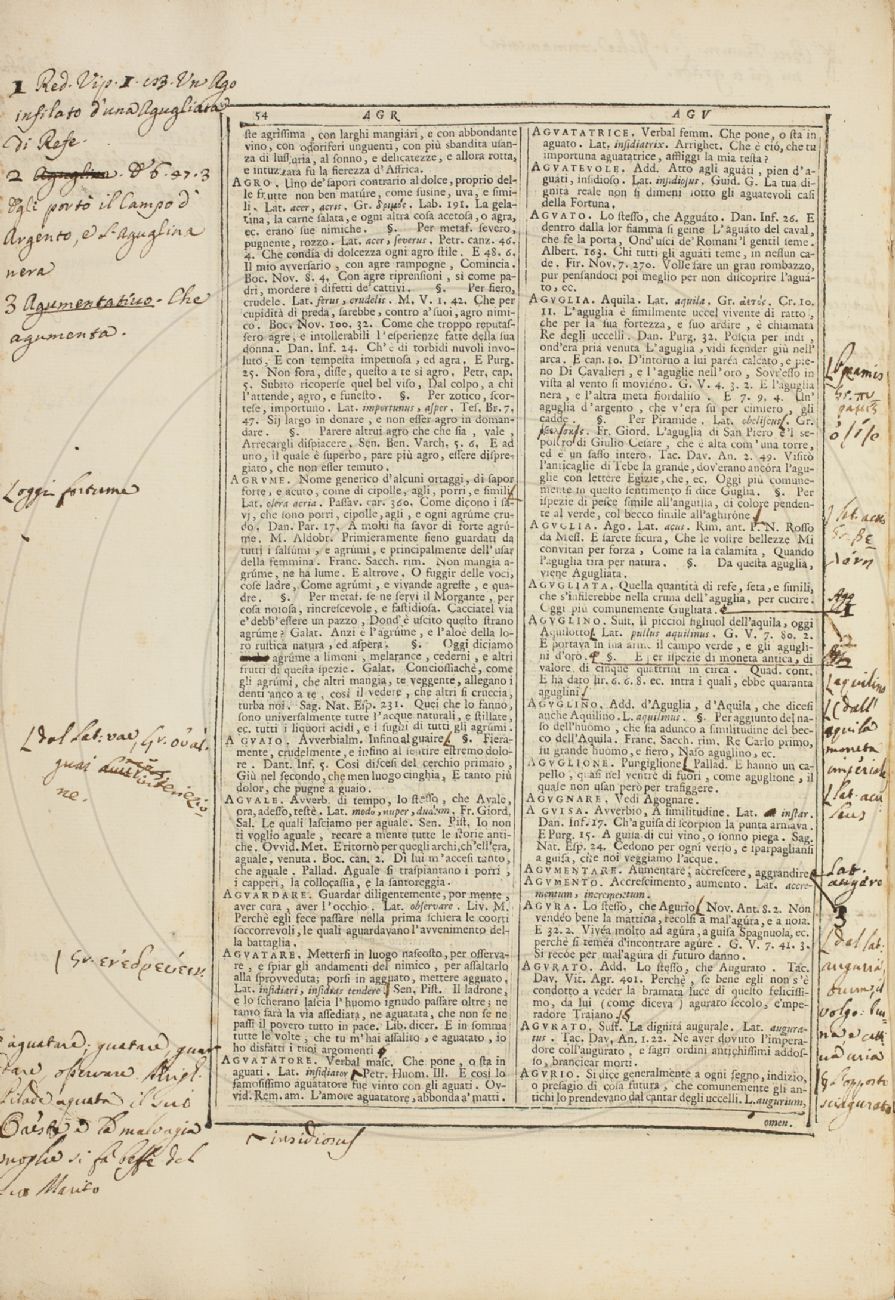 1 Red. Vip. 1. 123. Un Ago
infilato d'una Agugliata
di Refe.
2 Aguglia. d. 6. 47. 3
Egli portò il Campo d'
Argento, e l'Aguglina
nera
3 Agumentativo. Che
agumenta.
oggi fortume
dal Lat. vae, Gr. οὐαί.
guai
ne.
Gr. ἐνεδρεύειν
54 AGR
ste agrissima, con larghi mangiàri, e con abbondante
vino, con odoriferi unguenti, con più sbandita usan-
za di lussuria, al sonno, e delicatezze, e allora rotta,
e intuzzata fu la fierezza d'Affrica.
AGRO. Uno de' sapori contrario al dolce, proprio del-
le frutte non ben mature, come susine, uva, e simi-
li. Lat. acer, acris. Gr. Lab. 191. La gela-
tina, la carne salata, e ogni altra cosa acetosa, o agra,
ec. erano sue nimiche. §. Per metaf. severo,
pugnente, rozzo. Lat. acer, severus. Petr. canz. 46.
4. Che condía di dolcezza ogni agro stile. E 48. 6.
Il mio avversario, con agre rampogne, Comincia.
Boc. Nov. 8. 4. Con agre riprensioni, si come pa-
dri, mordere i difetti de' cattivi. §. Per fiero,
crudele. Lat. ferus, crudelis. M. V. 1. 42. Che per
cupidità di preda, sarebbe, contro a' suoi, agro nimi-
co. Boc. Nov. 100. 32. Come che troppo reputas-
sero agre, e intollerabili l'esperienze fatte della sua
donna. Dan. Inf. 24. Ch'è di torbidi nuvoli invo-
luto. E con tempesta impetuosa, ed agra. E Purg.
25. Non fora, disse, questo a te si agro. Petr, cap.
5. Subito ricoperse quel bel viso, Dal colpo, a chi
l'attende, agro, e funesto. §. Per zotico, scor-
tese, importuno. Lat. importunus, asper. Tes. Br. 7.
47. Sij largo in donare, e non esser agro in doman-
dare. §. Parere altrui agro che che sia, vale,
Arrecargli dispiacere, Sen. Ben. Varch. 5. 6. E ad
uno, il quale è superbo, pare più agro, essere dispre-
giato, che non esser temuto.
AGRUME. Nome generico d'alcuni ortaggi, di sapor
forte, e acuto, come di cipolle, agli, porri, e simili
Lat. olera acria. Passav. car. 360. Come diçono i sa-
vj, che sono porri, cipolle, agli, e ogni agrúme cru-
do. Dan. Par. 17. A molti fia savor di forte agrú-
me. M. Aldobr. Primieramente sieno guardati da
tutti i salsúmi, e agrúmi, e principalmente dell'usar
della femmina. Franc. Sacch. rim. Non mangia a-
grúme, ne ha lume. E altrove. O fuggir delle voci,
cose ladre, Come agrúmi, e vivande agreste, e qua-
dre. §. Per metaf. se ne servì il Morgante, per
cosa noiosa, rincrescevole, e fastidiosa. Cacciatel via
e' debb'essere un pazzo, Dond'è uscito questo strano
agrúme? Galat. Anzi è l'agrúme, e l'aloè della lo-
ro rustica natura, ed aspera. §. Oggi diciamo
agrúme a limoni, melarance, cederni, e altri
frutti di questa spezie. Galat. Conciossiachè, come
gli agrúmi, che altri mangia, te veggente, allegano i
denti anco a te, così il vedere, che altri si cruccia,
turba noi. Sag. Nat. Esp. 231. Quei che lo fanno,
sono universalmente tutte l'acque naturali, e stillate,
ec. tutti i liquori acidi, e i sughi di tutti gli agrúmi.
A GUAIO. Avverbialm. Infino al guaire §. Fiera-
mente, crudelmente, e infino al sentire estremo dolo-
re. Dant. Inf. 5. Così discesi del cerchio primaio,
Giù nel secondo, che men luogo cinghia, E tanto più
dolor, che pugne a guaio.
AGUALE. Avverb. di tempo, lo stesso, che Avale,
ora, adesso, testè. Lat. modo, nuper, dudum. Fr. Giord,
Sal. Le quali lasciamo per aguale. Sen. Pist. Io non
ti voglio aguale, recare a mente tutte le storie anti-
che. Ovvid. Met. E ritornò per quegli archi, ch'ell'era,
aguale, venuta. Boc. can. 2. Di lui m'accesi tanto,
che aguale. Pallad. Aguale si traspiantano i porri,
i capperi, la collocassia, e la santoreggia.
AGUARDARE. Guardar diligentemente, por mente,
aver cura, aver l'occhio. Lat. observare. Liv. M.
Perchè egli fece passare nella prima schiera le coorti
soccorrevoli, le quali aguardavano l'avvenimento del-
la battaglia.
AGUATARE. Mettersi in luogo nascosto, per osserva-
re, e spiar gli andamenti del nimico, per assaltarlo
alla sprovveduta; porsi in agguato, mettere agguato,
Lat. insidiari, insidias tendere Sen. Pist. Il ladrone,
e lo scherano lascia l'huomo ignudo passare oltre; ne
tanto sarà la via assediata, ne aguatata, che non se ne
passi il povero tutto in pace. Lib. dicer. E in somma
tutte le volte, che tu m'hai assalito, e aguatato, io
ho disfatti i tuoi argomenti
AGUATATORE. Verbal masc. Che pone, o sta in
aguati. Lat. insidiator Petr. Huom. Ill. E così lo
famosissimo aguatatore fue vinto con gli aguati. Ov-
vid. Rem. am. L'amore aguatatore, abbonda a' matti.
aguatare: guatare, guar
dare osservare
aguata il suo
E la malvagia
moglie si fa beffe del
suo Marito
insidiosus
AGU
AGUATATRICE. Verbal femm. Che pone, o sta in
aguato. Lat. insidiatrix. Arrighet. Che è ciò, che tu
importuna aguatatrice, affliggi la mia testa?
AGUATEVOLE. Add. Atto agli aguáti, pien d'a-
guáti, insidioso. Lat. insidiosus. Guid. G. La tua di-
gnità reale non si dimeni sotto gli aguatevoli casi
della Fortuna.
AGUATO. Lo stesso, che Agguáto. Dan. Inf. 26. E
dentro dalla lor fiamma si geme L'aguáto del caval,
che fe la porta, Ond'usci de'Romani 'l gentil seme.
Albert. 163. Chi tutti gli aguáti teme, in nessun ca-
de. Fir. Nov. 7. 270. Volle fare un gran rombazzo,
pur pensandoci poi meglio per non discoprire l'aguá-
to, ec.
AGUGLIA. Aquila. Lat. aquila. Gr. ἀετός. Cr. 10.
11. L'aguglia è similmente uccel vivente di ratto,
che per la sua fortezza, e suo ardire, è chiamata
Re degli uccelli. Dan. Purg. 32. Poscia per indi,
ond'era pria venuta L'aguglia, vidi scender giù nell'
arca. E can. 10. D'intorno a lui parea calcato, e pie-
no Di Cavalieri, e l'aguglie nell'oro, Sovr'esso in
vista al vento si moviéno. G. V. 4. 3. 2. E l'aguglia
nera, e l'altra meta fiordaliso. E 7. 9. 4. Un'
aguglia d'argento, che v'era su per cimiero, gli
cadde. §. Per Piramide. Lat. obeliscus. Gr.
Fr. Giord. L'aguglia di San Piero è 'l se-
polcro di Giulio Cesare, che è alta com'una torre,
ed è un sasso intero. Tac. Dav. An. 2. 49. Visitò
l'anticaglie di Tebe la grande, dov'erano ancóra l'agu-
glie con lettere Egizie, che, ec. Oggi più comune-
mente in questo sentimento si dice Guglia. §. Per
ispezie di pesce simile all'anguilla, di colore penden-
te al verde, col becco simile all'aghiróne
AGUGLIA. Ago. Lat. acus. Rim. ant. P. N. Rosso
da Mess. E sarete sicura, Che le vostre bellezze Mi
convitan per forza, Come fa la calamita, Quando
l'aguglia tira per natura. §. Da questa aguglia,
viene Agugliata.
AGUGLIATA. Quella quantità di refe, seta, e simili,
che s'infilerebbe nella cruna dell'aguglia, per cucire.
Oggi più comunemente Gugliata.
AGUGLINO. Sust. Il picciol figliuol dell'aquila, oggi
Aquilotto Lat. pullus aquilinus. G. V. 7. 80. 2.
E portava in sua arme il campo verde, e gli agugli-
ni d'oro. §. E per ispezie di moneta antica, di
valore di cinque quattrini in circa. Quad. cont.
E ha dato lir. 6. 6. 8. ec. intra i quali, ebbe quaranta
aguglini
AGUGLINO. Add. d'Aguglia, d'Aquila, che dicesi
anche Aquilino. L. aquilinus. §. Per aggiunto del na-
so dell'huomo, che sia adunco a similitudine del bec-
co dell'Aquila. Franc. Sacch. rim. Re Carlo primo,
fu grande huomo, e fiero, Naso aguglino, ec.
AGUGLIONE. Pungiglione Pallad. E hanno un ca-
pello, quasi nel ventre di fuori, come aguglione, il
quale non usan però per trafiggere.
AGUGNARE. Vedi Agognare.
A GUISA. Avverbio, A similitudine. Lat. instar.
Dan. Inf. 17. Ch'a guisa di scorpion la punta armava.
E Purg. 15. A guisa di cui vino, o sonno piega. Sag.
Nat. Esp. 24. Cedono per ogni verso, e sparpagliansi
a guisa, che noi veggiamo l'acque.
AGUMENTARE. Aumentare, accrescere, aggrandire
AGUMENTO. Accrescimento, aumento. Lat. accre-
mentum, incrementum.
AGURA. Lo stesso, che Agurio Nov. Ant. 8. 2. Non
vendéo bene la mattina, recolsi a mal'agúra, e a noia.
E 32. 2. Vivéa molto ad agúra, a guisa Spagnuola, ec.
perchè si teméa d'incontrare agúre. G. V. 7. 41. 3.
Si recóe per mal'agúra di futuro danno.
AGURATO. Add. Lo stesso, che Augurato. Tac.
Dav. Vit. Agr. 401. Perchè, se bene egli non s'è
condotto a veder la bramata luce di questo felicissi-
mo, da lui (come diceva) agurato secolo, e'mpe-
radore Traiano
AGURATO. Sust. La dignità augurale. Lat. augura-
tus. Tac. Dav, An. 1. 22. Ne aver dovuto l'impera-
dore coll'augurato, e sagri ordini antichissimi addos-
so, brancicar morti.
AGURIO. Si dice generalmente a ogni segno, indizio,
o presagio di cosa futura, che comunemente gli an-
tichi lo prendevano dal cantar degli uccelli. L. augurium,
omen.
Pyramis
Lat. acus
Gr. βε
λόνη
Ago
1
2
aquilino
(dall'
aquila
moneta
imperiale
Lat. acu
leus
Lat.
augere
3
dal Lat.
auguria
volgo: buo
na e catti
va uria
§ opposto
sciagurato